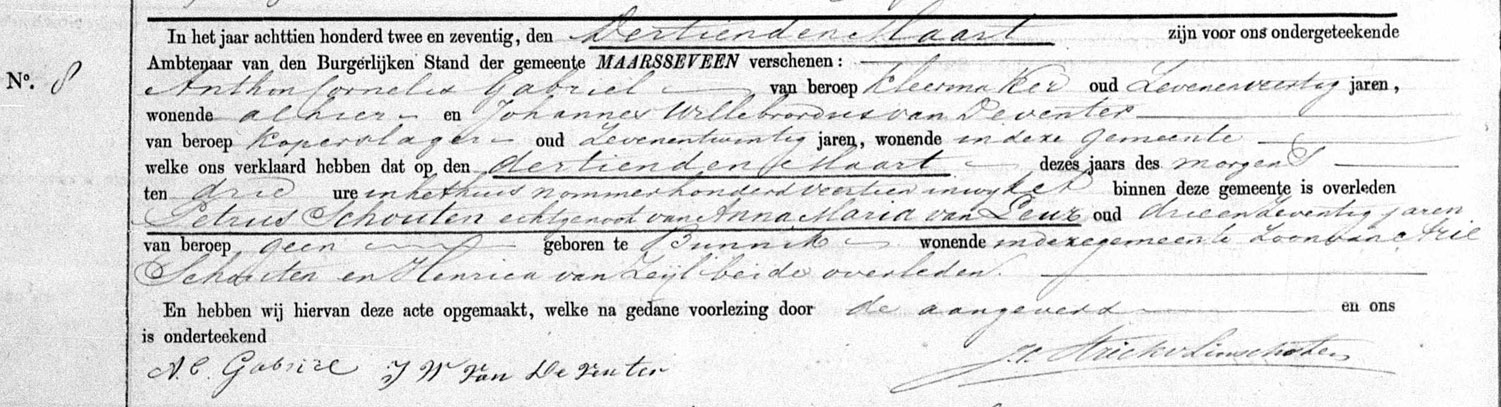 In het jaar achttien honderd twee en zeventig, den Dertienden Maart zijn voor ons ondergeteekende
Ambtenaar van den Burgerlijken Stand der gemeente MAARSSEVEEN verschenen:
No. 8
Anthon Cornelis Gabriel van beroep kleermaker oud Zevenenveertig jaren,
wonende alhier en Johannes Willebrordus van Deventer
van beroep koperslager oud Zevenentwintig jaren, wonende in deze gemeente
welke ons verklaard hebben dat op den dertienden Maart dezes jaars des morgens
ten drie ure in het huis nommer honderd veertien in wyk binnen deze gemeente is overleden
Petrus Schouten echtgenoot van Anna Maria van oud drie en Zeventig jaren
van beroep geen geboren te Bunnik wonende in deze gemeente Zoon van Arie
Schouten en Henrica van Zeijl beide overleden.
En hebben wij hiervan deze acte opgemaakt, welke na gedane voorlezing door de aangevers en ons
is onderteekend
A. C. Gabriel J W van Deventer Strick v Linschoten